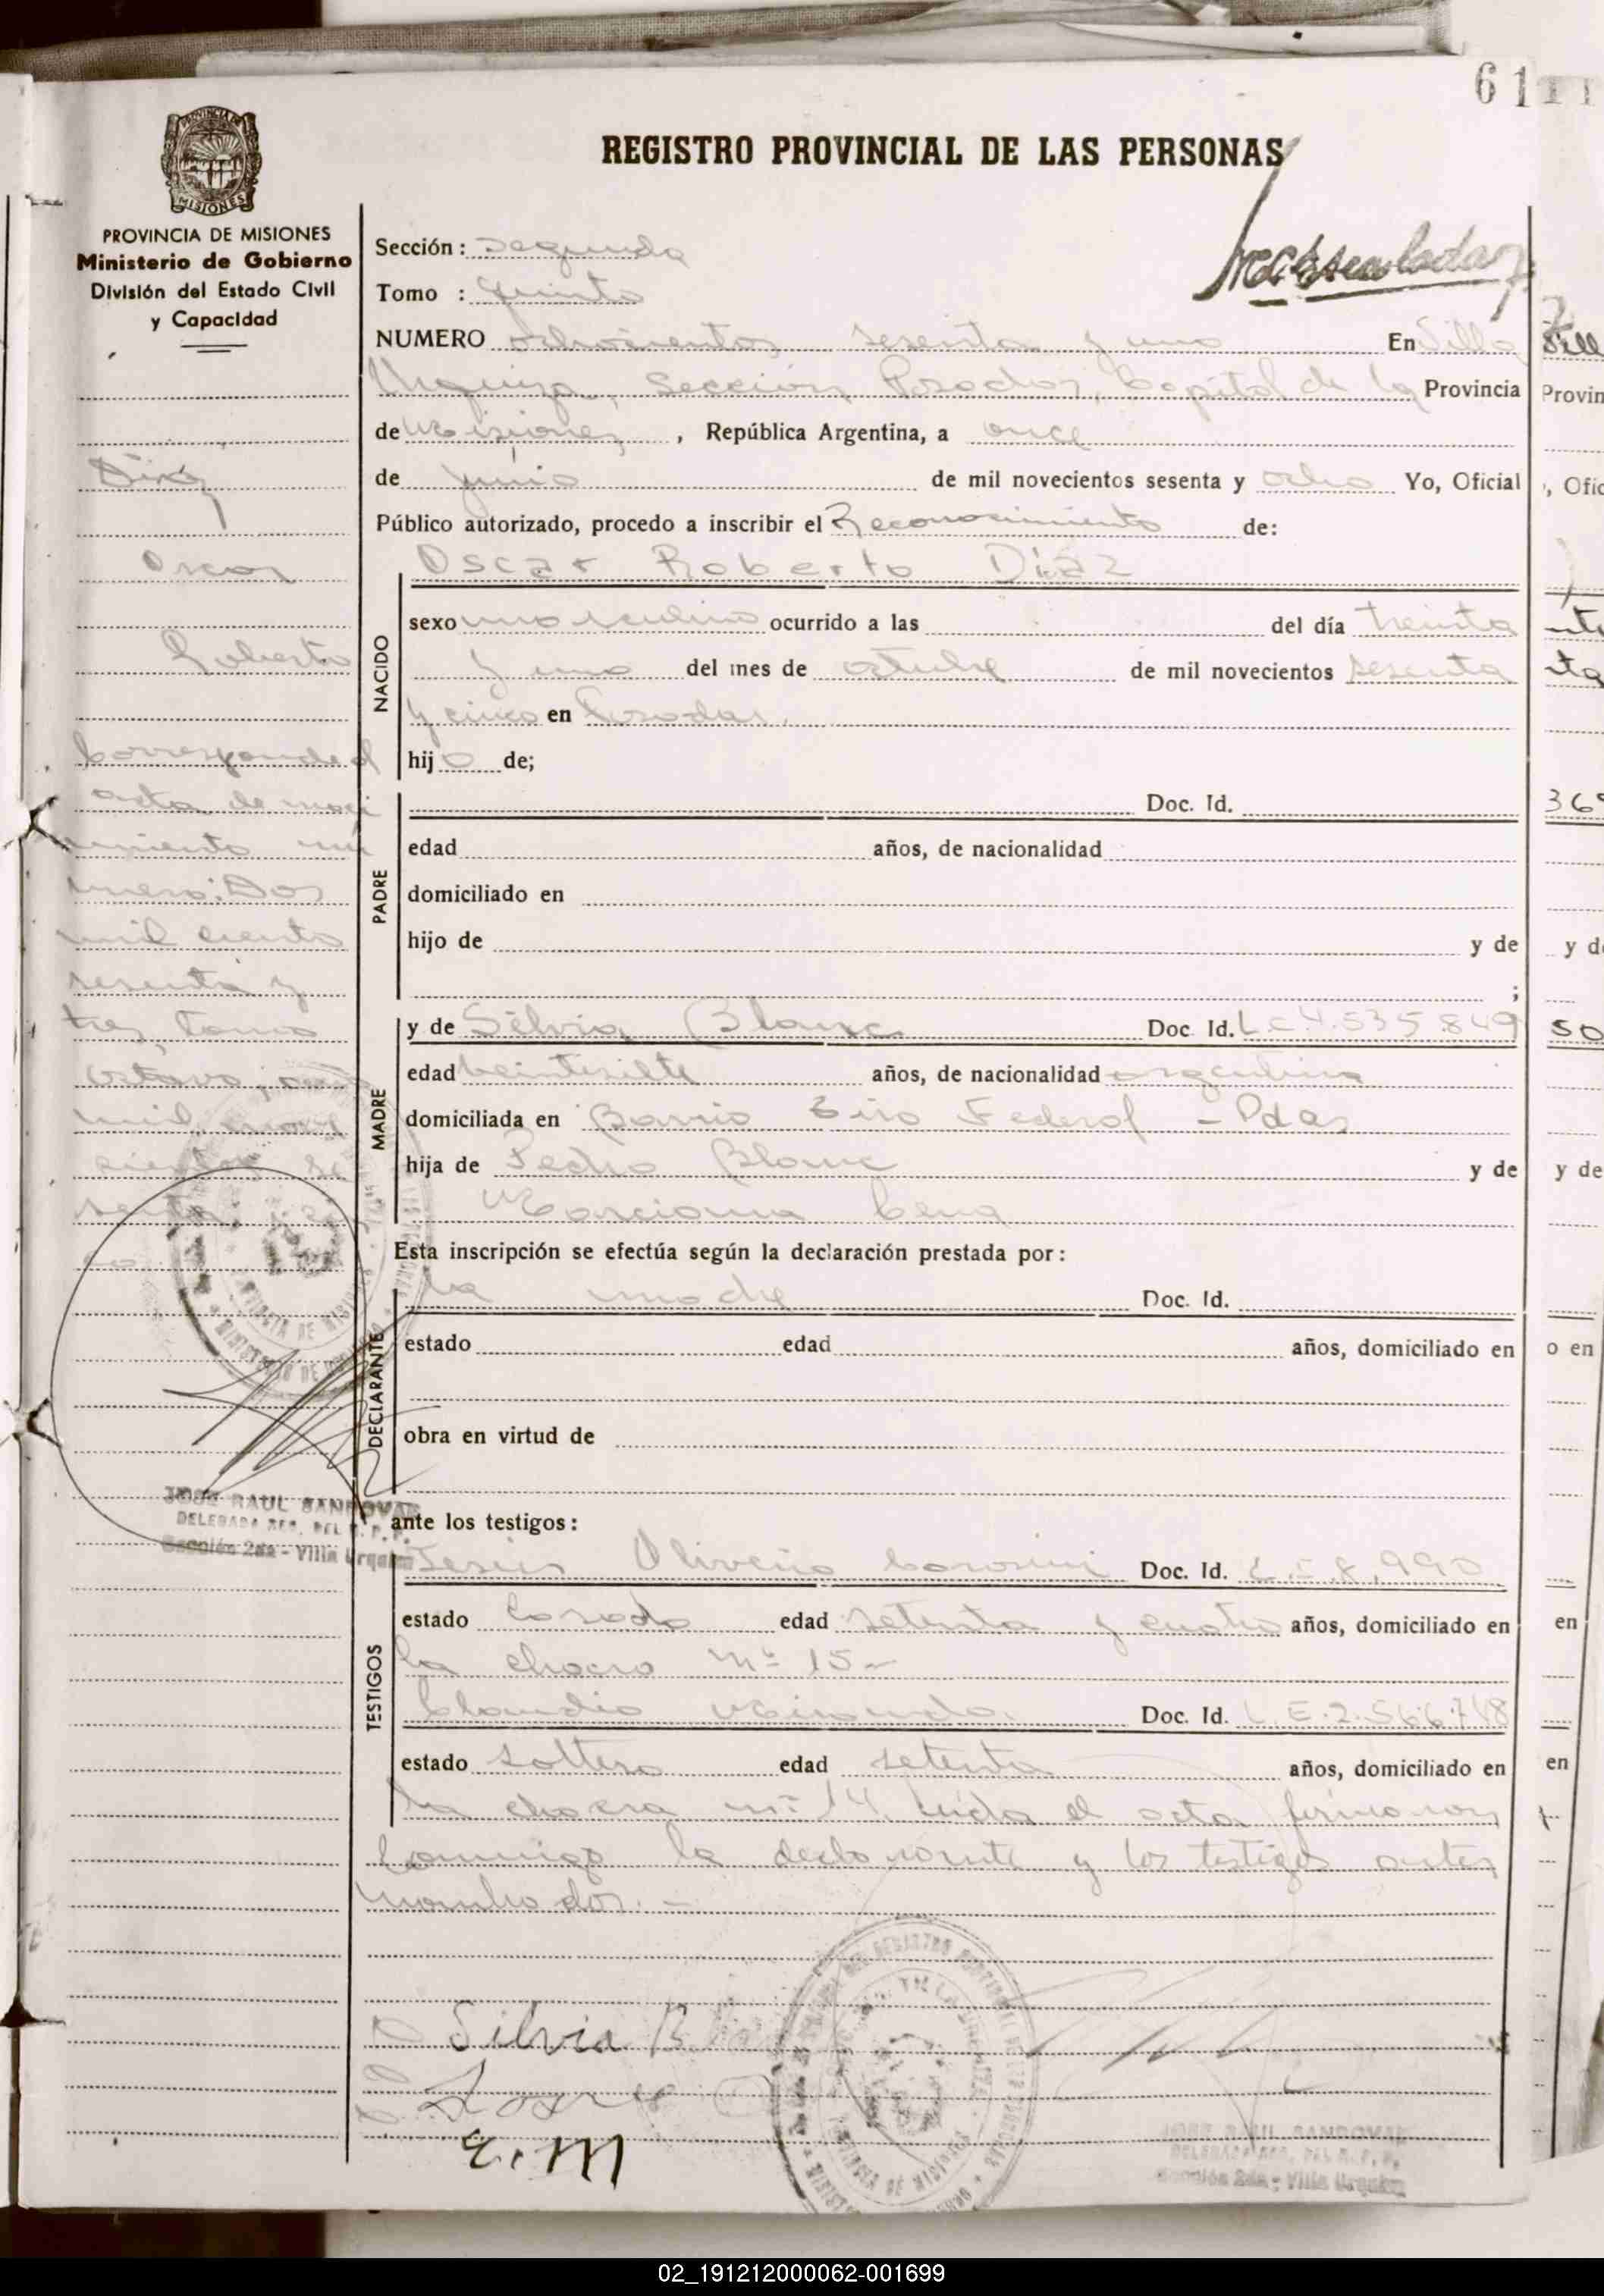 61
REGISTRO PROVINCIAL DE LAS PERSONAS
PROVINCIA DE MISIONES
Ministerio de Gobierno
División del Estado Civil
y Capacidad
Sección: Segunda
Tomo : Quinto
NUMERO ochocientos sesenta y uno En Villa
Urquiza, Sección Posadas, Capital de la Provincia
de Misiones, República Argentina, a once
de junio de mil novecientos sesenta y ocho Yo, Oficial
Público autorizado, procedo a inscribir el Reconocimiento de:
Oscar Roberto Díaz
NACIDO
sexo masculino ocurrido a las del día treinta
y uno del mes de octubre de mil novecientos sesenta
y cinco en Posadas.
hijo de;
PADRE
Doc. Id.
edad años, de nacionalidad
domiciliado en
hijo de y de
;
MADRE
y de Silvia Blanc Doc Id. L.C 4.535.849
edad veintisiete años, de nacionalidad argentina
domiciliada en Barrio Tiro Federal - Pdas
hija de Pedro Blanc y de
Marciana Cena
Esta inscripción se efectúa según la declaración prestada por:
DECLARANTE
la madre Doc. Id.
estado edad años, domiciliado en
obra en virtud de
ante los testigos:
TESTIGOS
Jesús Doc. Id. L.E.8.990
estado Casado edad setenta y cuatro años, domiciliado en
la chacra nº 15-
Claudio Miranda. Doc. Id. L.E.2.566.748
estado soltero edad setenta años, domiciliado en
la chacra nº 14. Leída el acta firman con
conmigo la declarante y los testigos antes
nombrados. -
Díaz
Oscar
Roberto
Corresponde al
acta de naci
miento nú
mero: Dos
mil ciento
sesenta y
tres, tomo
octavo, año
mil nove
cientos se
senta y cin
co.
JOSE RAUL SANDOVAL
DELEGADO REG. DEL R. P. P.
Sección 2da - Villa Urquiza
Silvia B
E. M
JOSE RAUL SANDOVAL
DELEGADO REG. DEL R. P. P.
Sección 2da - Villa Urquiza
02_191212000062-001699